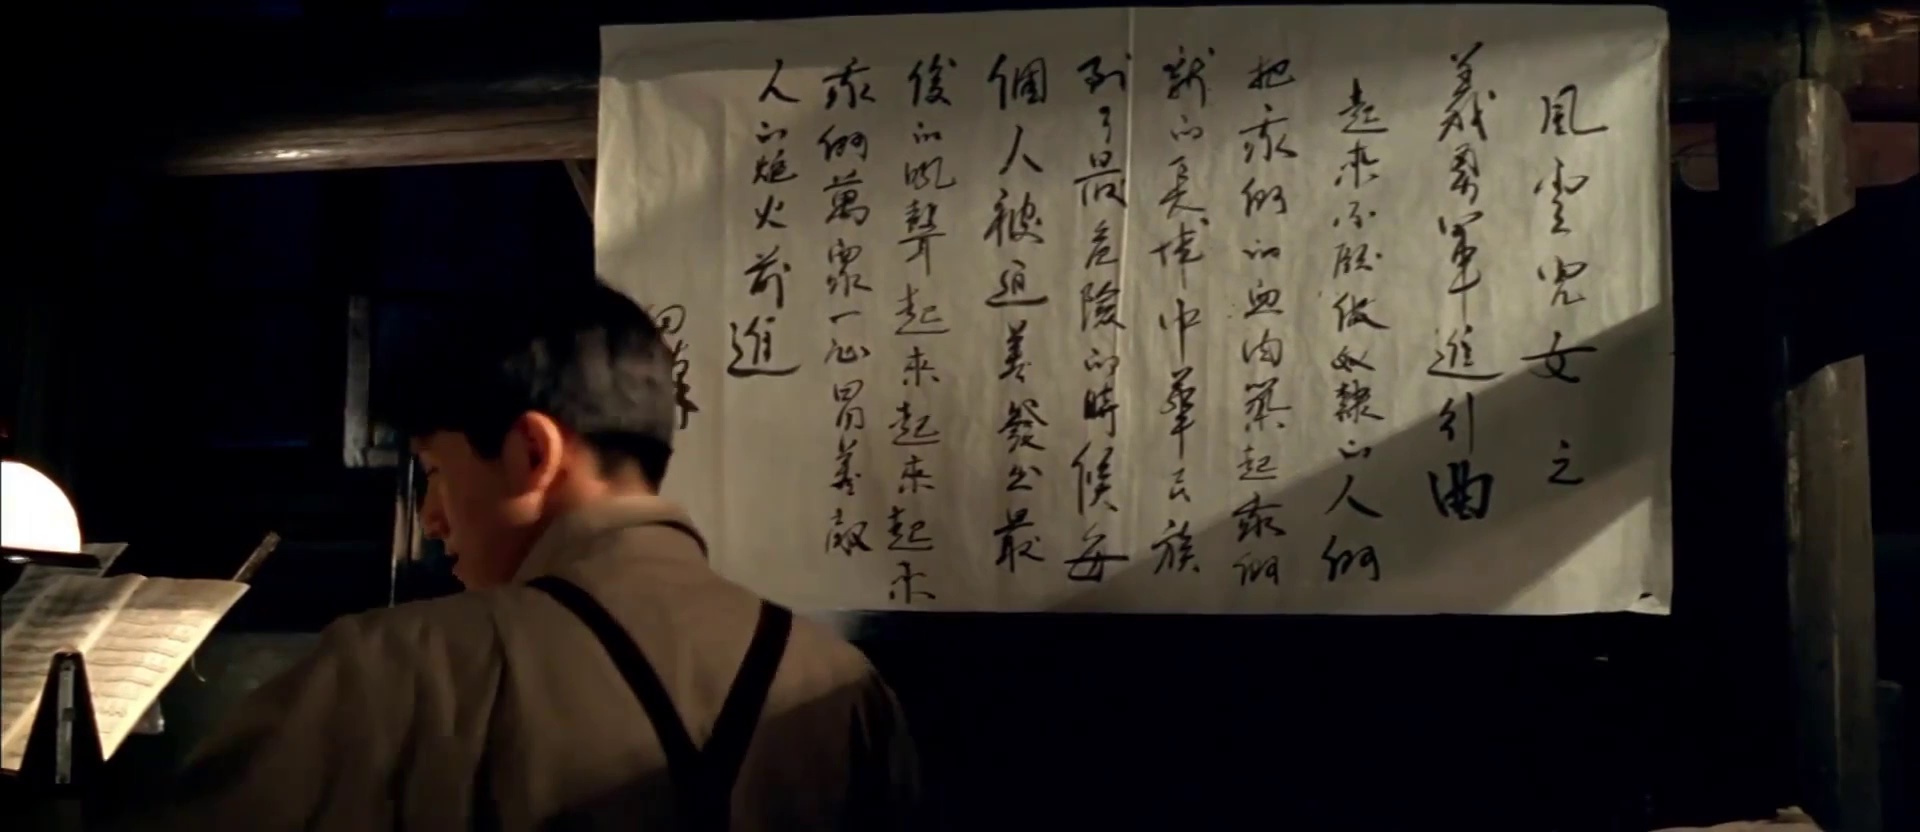 風雲兒女之
義勇軍進行曲
起來不願做奴隸的人們
把我們的血肉築起我們
新的長城中華民族
到了最危險的時候每
個人被迫着發出最
後的吼聲起來起來起來
我們萬眾一心冒着敵
人的炮火前進
田漢